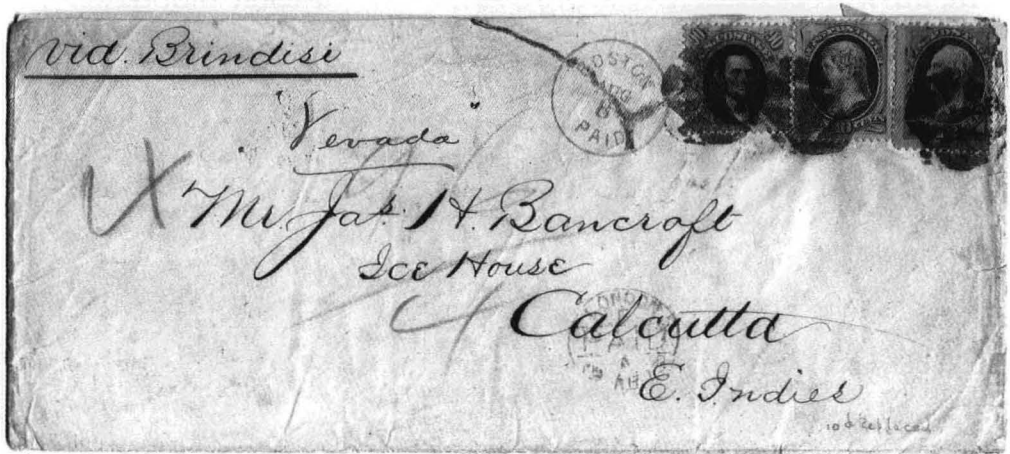 via. Brindisi
BOSTON
AUG
PAID
"Nevada"
Mr. Jas. H. Bancroft
Ice House
Calcutta
E. Indies
PAID
10¢ Replaced